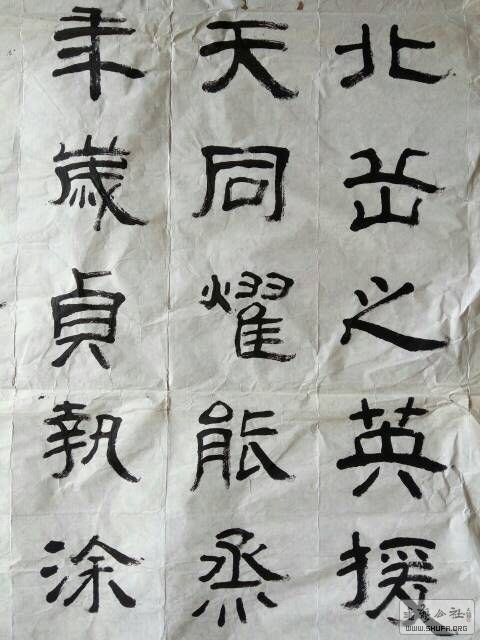 北岳之英援
天同燿能烝
年歲貞執涂
公社
WWW.SHUFA.ORG